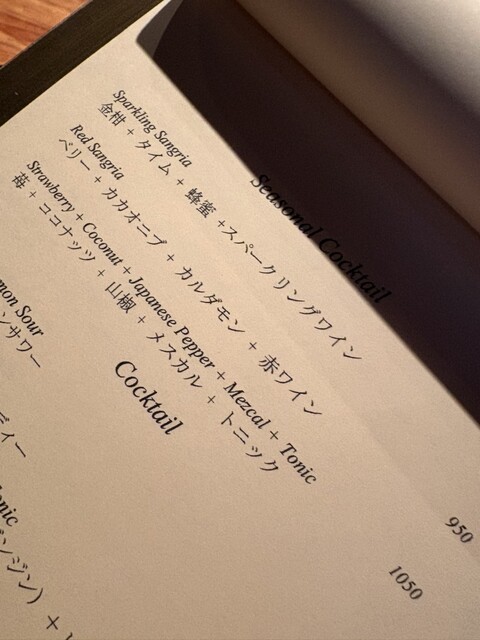 Seasonal Cocktail
Sparkling Sangria
金柑 + タイム + 蜂蜜 +スパークリングワイン
Red Sangria
ベリー + カカオニブ + カルダモン + 赤ワイン
950
Strawberry + Coconut + Japanese Pepper + Mezcal + Tonic
苺 + ココナッツ + 山椒 + メスカル + トニック
1050
Cocktail
Sour
ンサワー
ディー
ジン） +